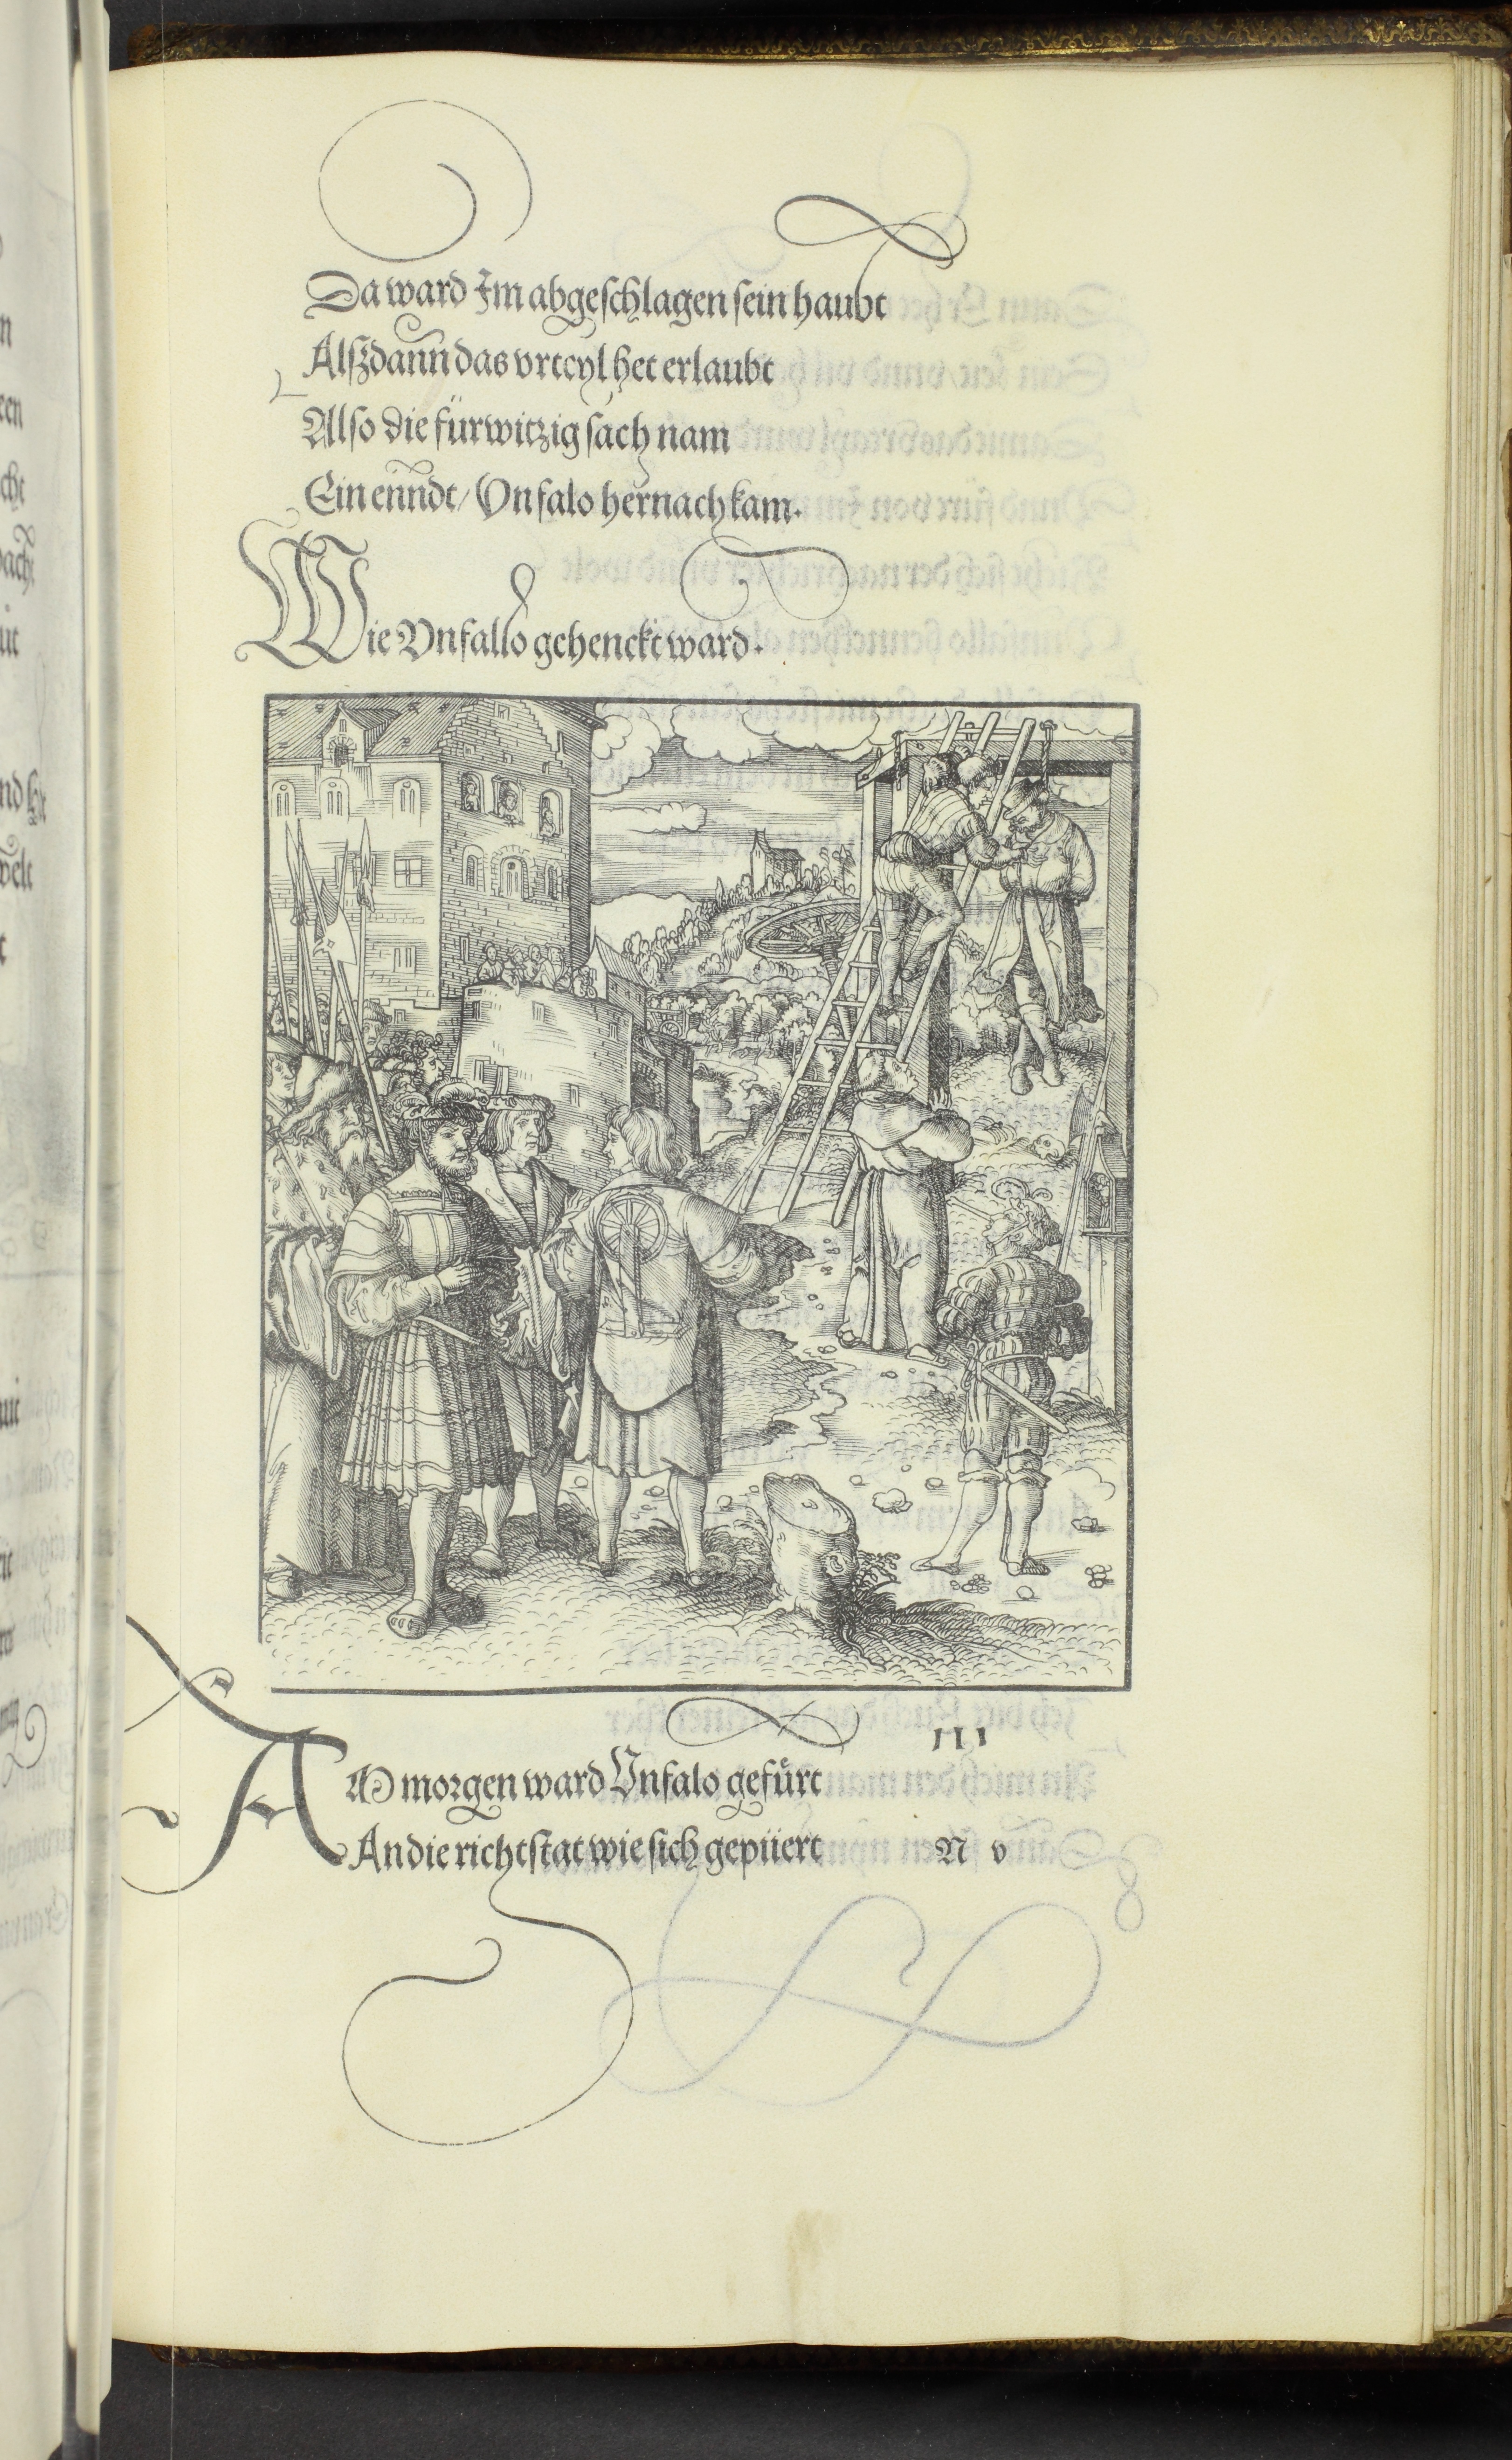 Da ward Im abgeschlagen sein haubt
Alßdann das vrteyl het erlaubt
Also die fürwitzig sach nam
Ein ennde/ Vnfalo hernach kam.
Wie Vnfallo gehenckt ward.
III
AM morgen ward Vnfalo gefürt
An die richtstat wie sich gepüert
N v